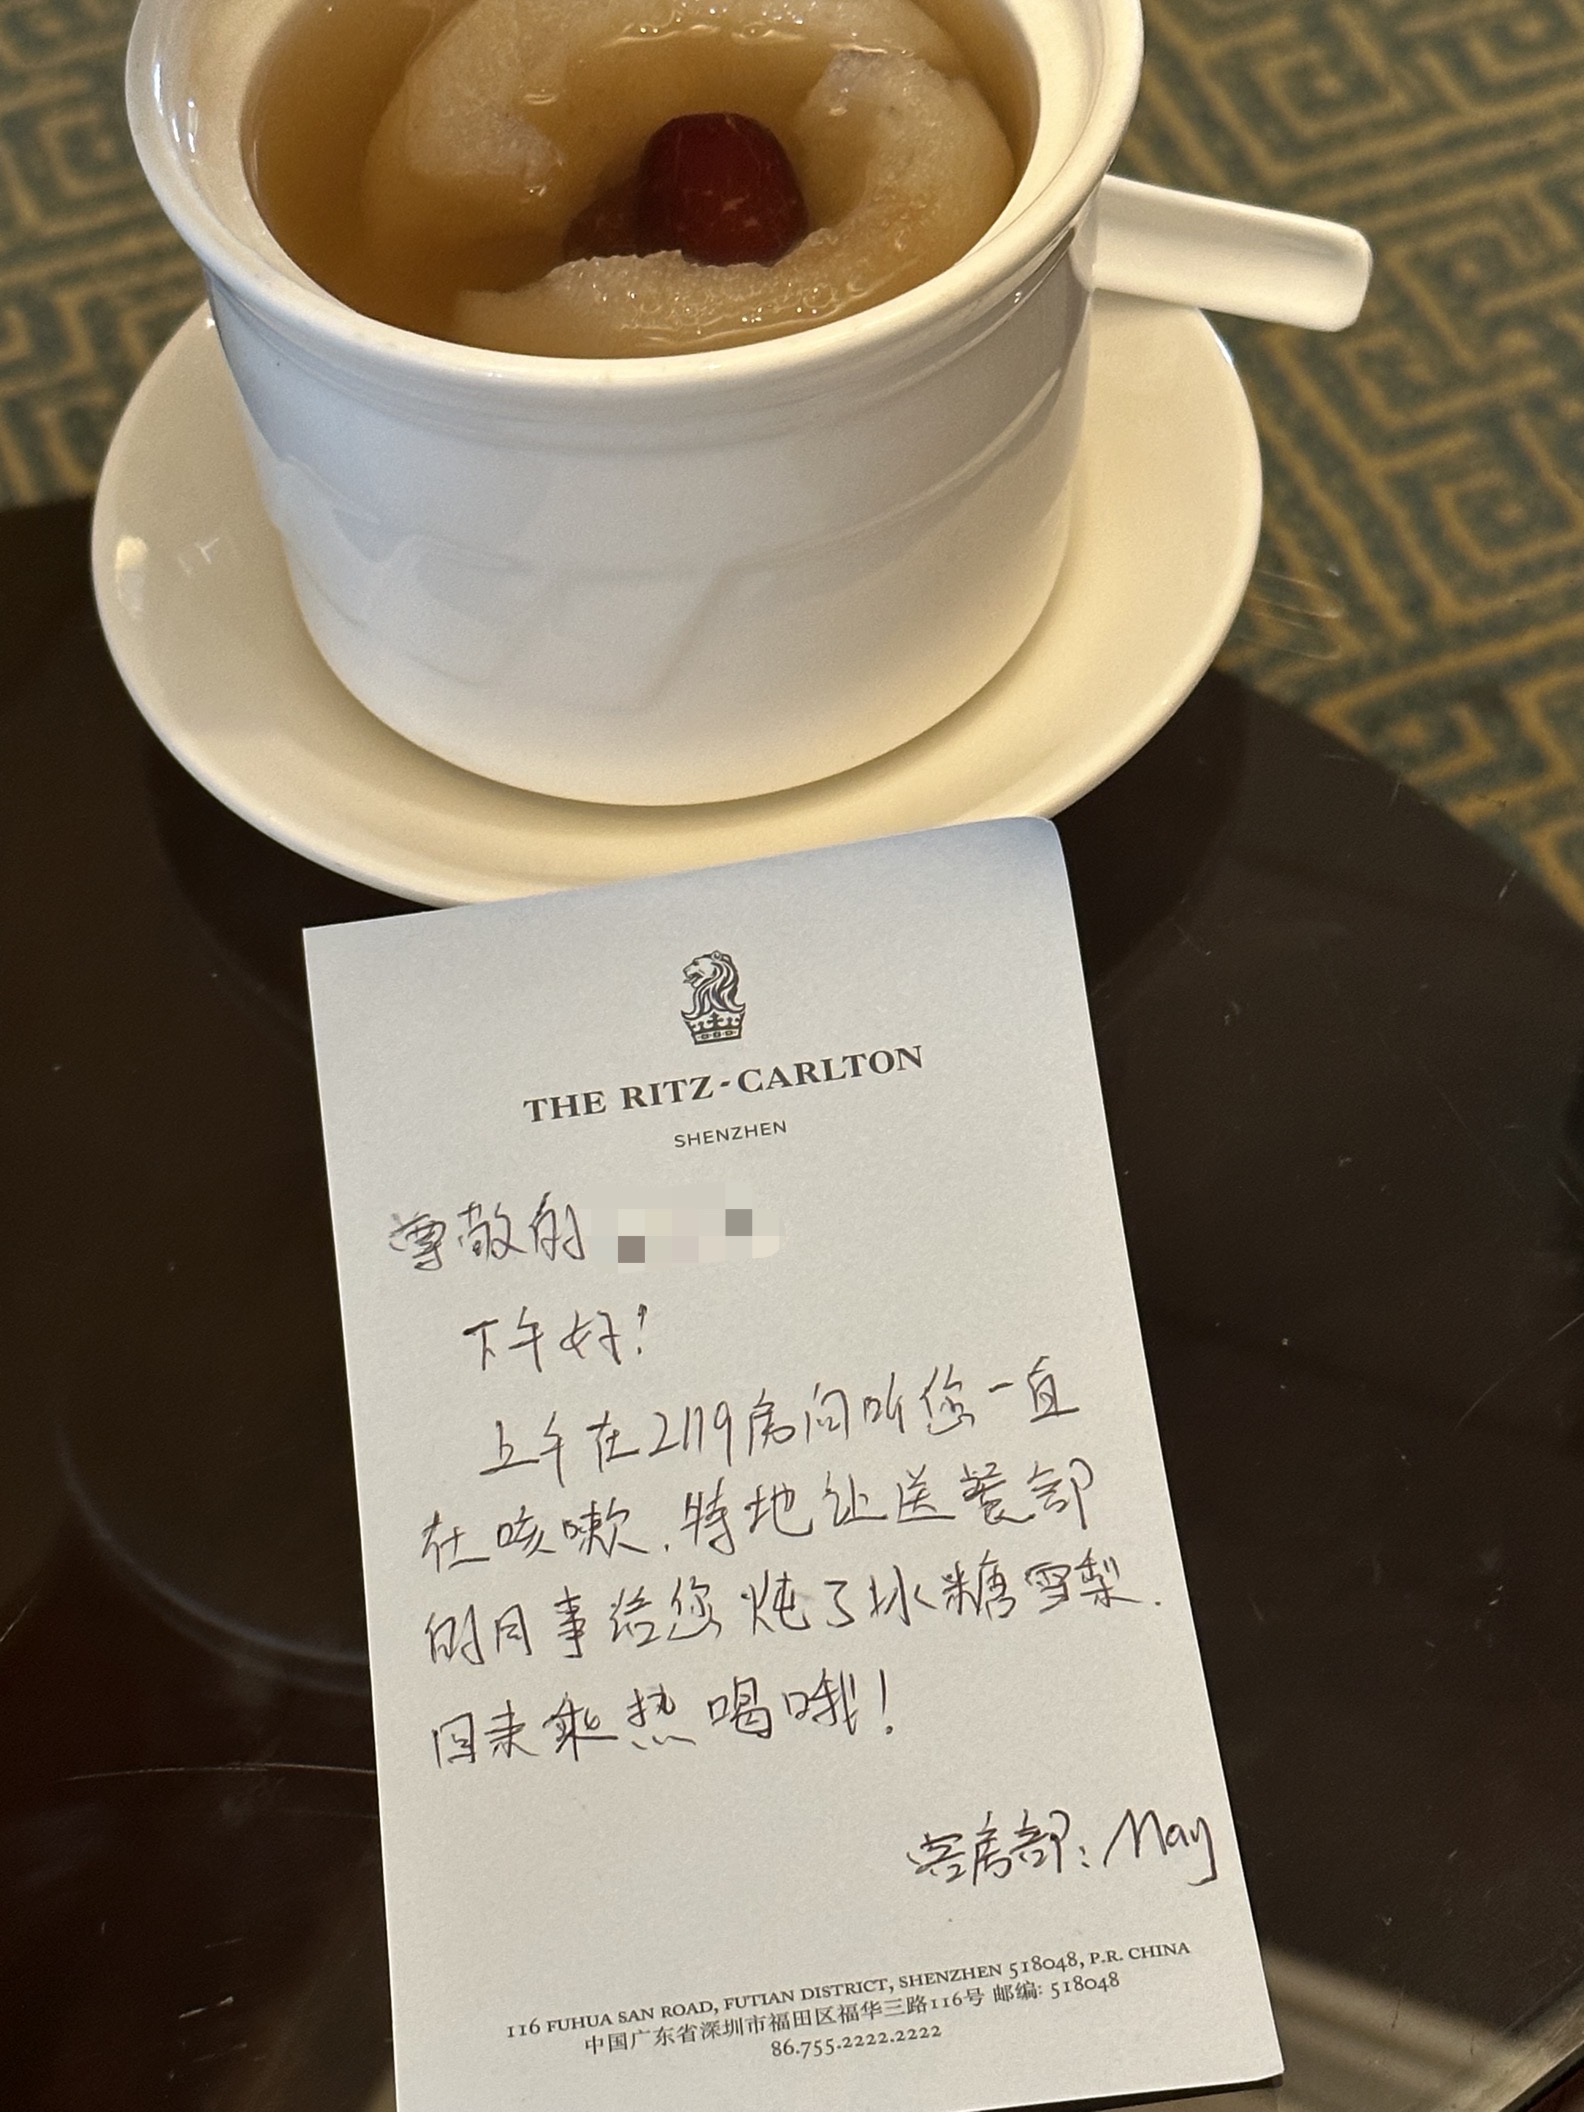 THE RITZ-CARLTON
SHENZHEN
尊敬的
下午好!
上午在2119房间听您一直
在咳嗽,特地让送餐部
的同事给您炖了冰糖雪梨.
回来乘热喝哦!
客房部:May
116 FUHUA SAN ROAD, FUTIAN DISTRICT, SHENZHEN 518048, P.R. CHINA
中国广东省深圳市福田区福华三路116号 邮编: 518048
86.755.2222.2222